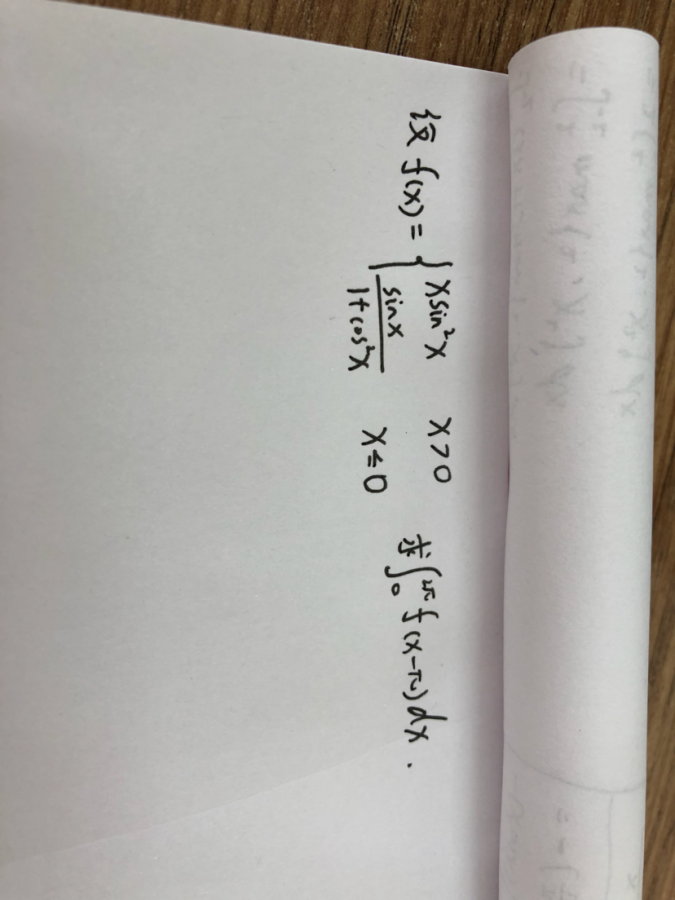 设 f(x) = { x sin²x    x > 0
sinx / 1+cos²x    x ≤ 0
求 ∫₀^{2π} f(x-π) dx .